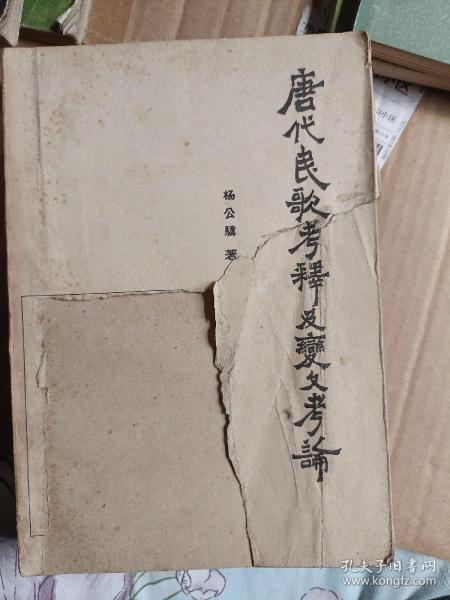 唐代民歌考釋及變文考論
杨公驥 著
孔夫子旧书网
www.kongfz.com